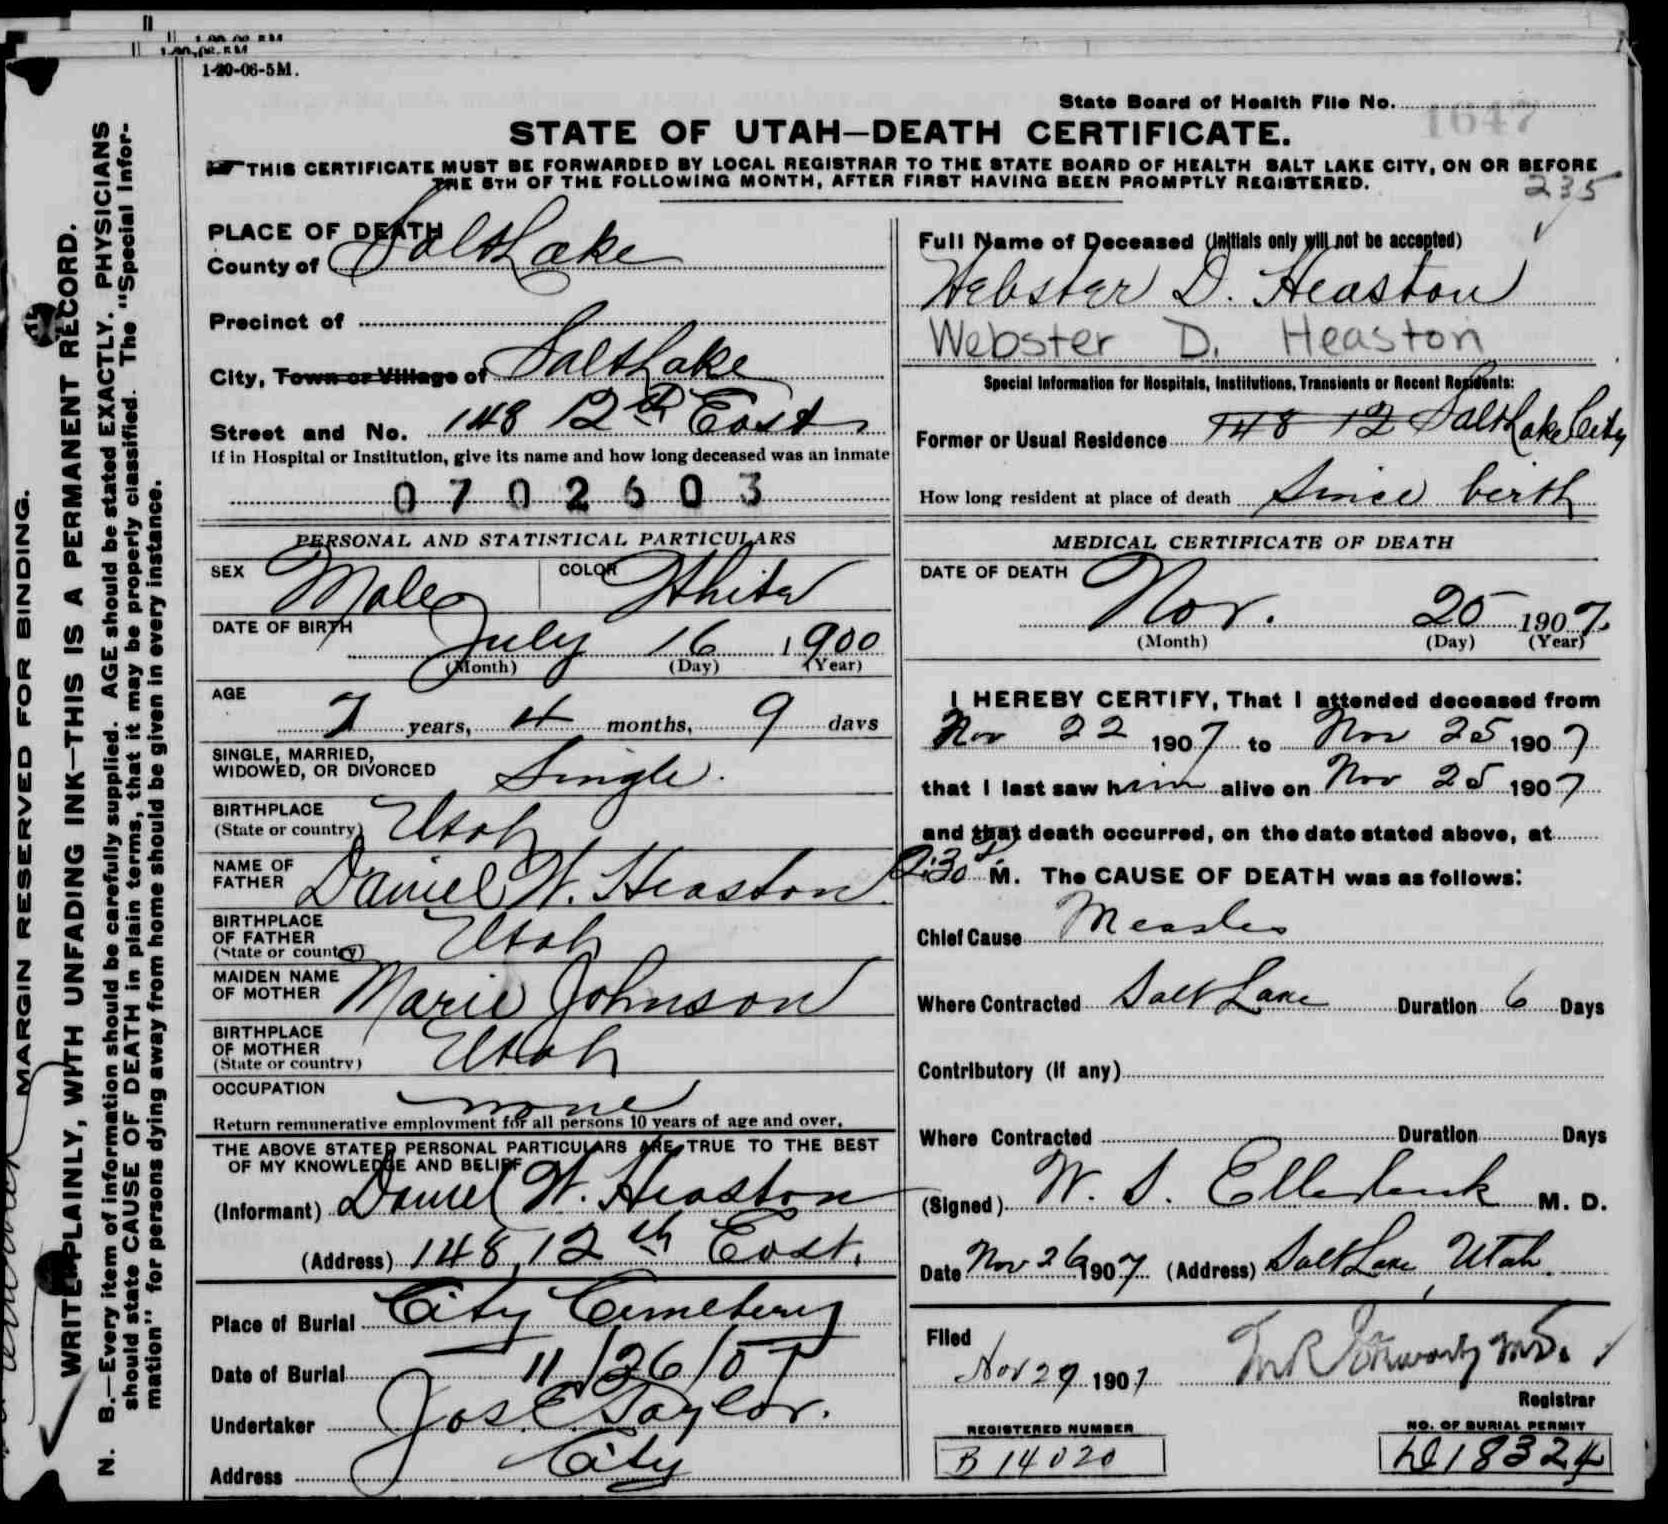 1-20-06-5M.
1-20-06-5M.
State Board of Health File No. 1647
STATE OF UTAH—DEATH CERTIFICATE.
THIS CERTIFICATE MUST BE FORWARDED BY LOCAL REGISTRAR TO THE STATE BOARD OF HEALTH SALT LAKE CITY, ON OR BEFORE
THE 5TH OF THE FOLLOWING MONTH, AFTER FIRST HAVING BEEN PROMPTLY REGISTERED.
235
MARGIN RESERVED FOR BINDING.
WRITE PLAINLY, WITH UNFADING INK—THIS IS A PERMANENT RECORD.
N. B.—Every item of information should be carefully supplied. AGE should be stated EXACTLY. PHYSICIANS
should state CAUSE OF DEATH in plain terms, that it may be properly classified. The "Special Infor-
mation" for persons dying away from home should be given in every instance.
PLACE OF DEATH
County of Salt Lake
Precinct of
City, Town or Village of Salt Lake
Street and No. 148 12th East
If in Hospital or Institution, give its name and how long deceased was an inmate
0702603
PERSONAL AND STATISTICAL PARTICULARS
SEX Male COLOR White
DATE OF BIRTH
July 16 1900
(Month) (Day) (Year)
AGE
7 years, 4 months, 9 days
SINGLE, MARRIED,
WIDOWED, OR DIVORCED Single.
BIRTHPLACE
(State or country) Utah
NAME OF
FATHER Daniel W. Heaston
BIRTHPLACE
OF FATHER
(State or country) Utah
MAIDEN NAME
OF MOTHER Marie Johnson
BIRTHPLACE
OF MOTHER
(State or country) Utah
OCCUPATION
none
Return remunerative employment for all persons 10 years of age and over.
THE ABOVE STATED PERSONAL PARTICULARS ARE TRUE TO THE BEST
OF MY KNOWLEDGE AND BELIEF
(Informant) Daniel W. Heaston
(Address) 148, 12th East.
Place of Burial City Cemetery
Date of Burial 11/26/07
Undertaker Jos. E. Taylor.
Address City
Full Name of Deceased (Initials only will not be accepted)
Webster D. Heaston
Webster D. Heaston
Special Information for Hospitals, Institutions, Transients or Recent Residents:
Former or Usual Residence 148 12 Salt Lake City
How long resident at place of death Since birth
MEDICAL CERTIFICATE OF DEATH
DATE OF DEATH
Nov. 25 1907
(Month) (Day) (Year)
I HEREBY CERTIFY, That I attended deceased from
Nov 22 1907 to Nov 25 1907
that I last saw him alive on Nov 25 1907
and that death occurred, on the date stated above, at
2:30 P M. The CAUSE OF DEATH was as follows:
Chief Cause Measles
Where Contracted Salt Lake Duration 6 Days
Contributory (if any)
Where Contracted Duration Days
(Signed) W. S. Ellerbeck M. D.
Date Nov 26 1907 (Address) Salt Lake, Utah
Filed
Nov 29 1907
Registrar
REGISTERED NUMBER
B 14020
NO. OF BURIAL PERMIT
18324